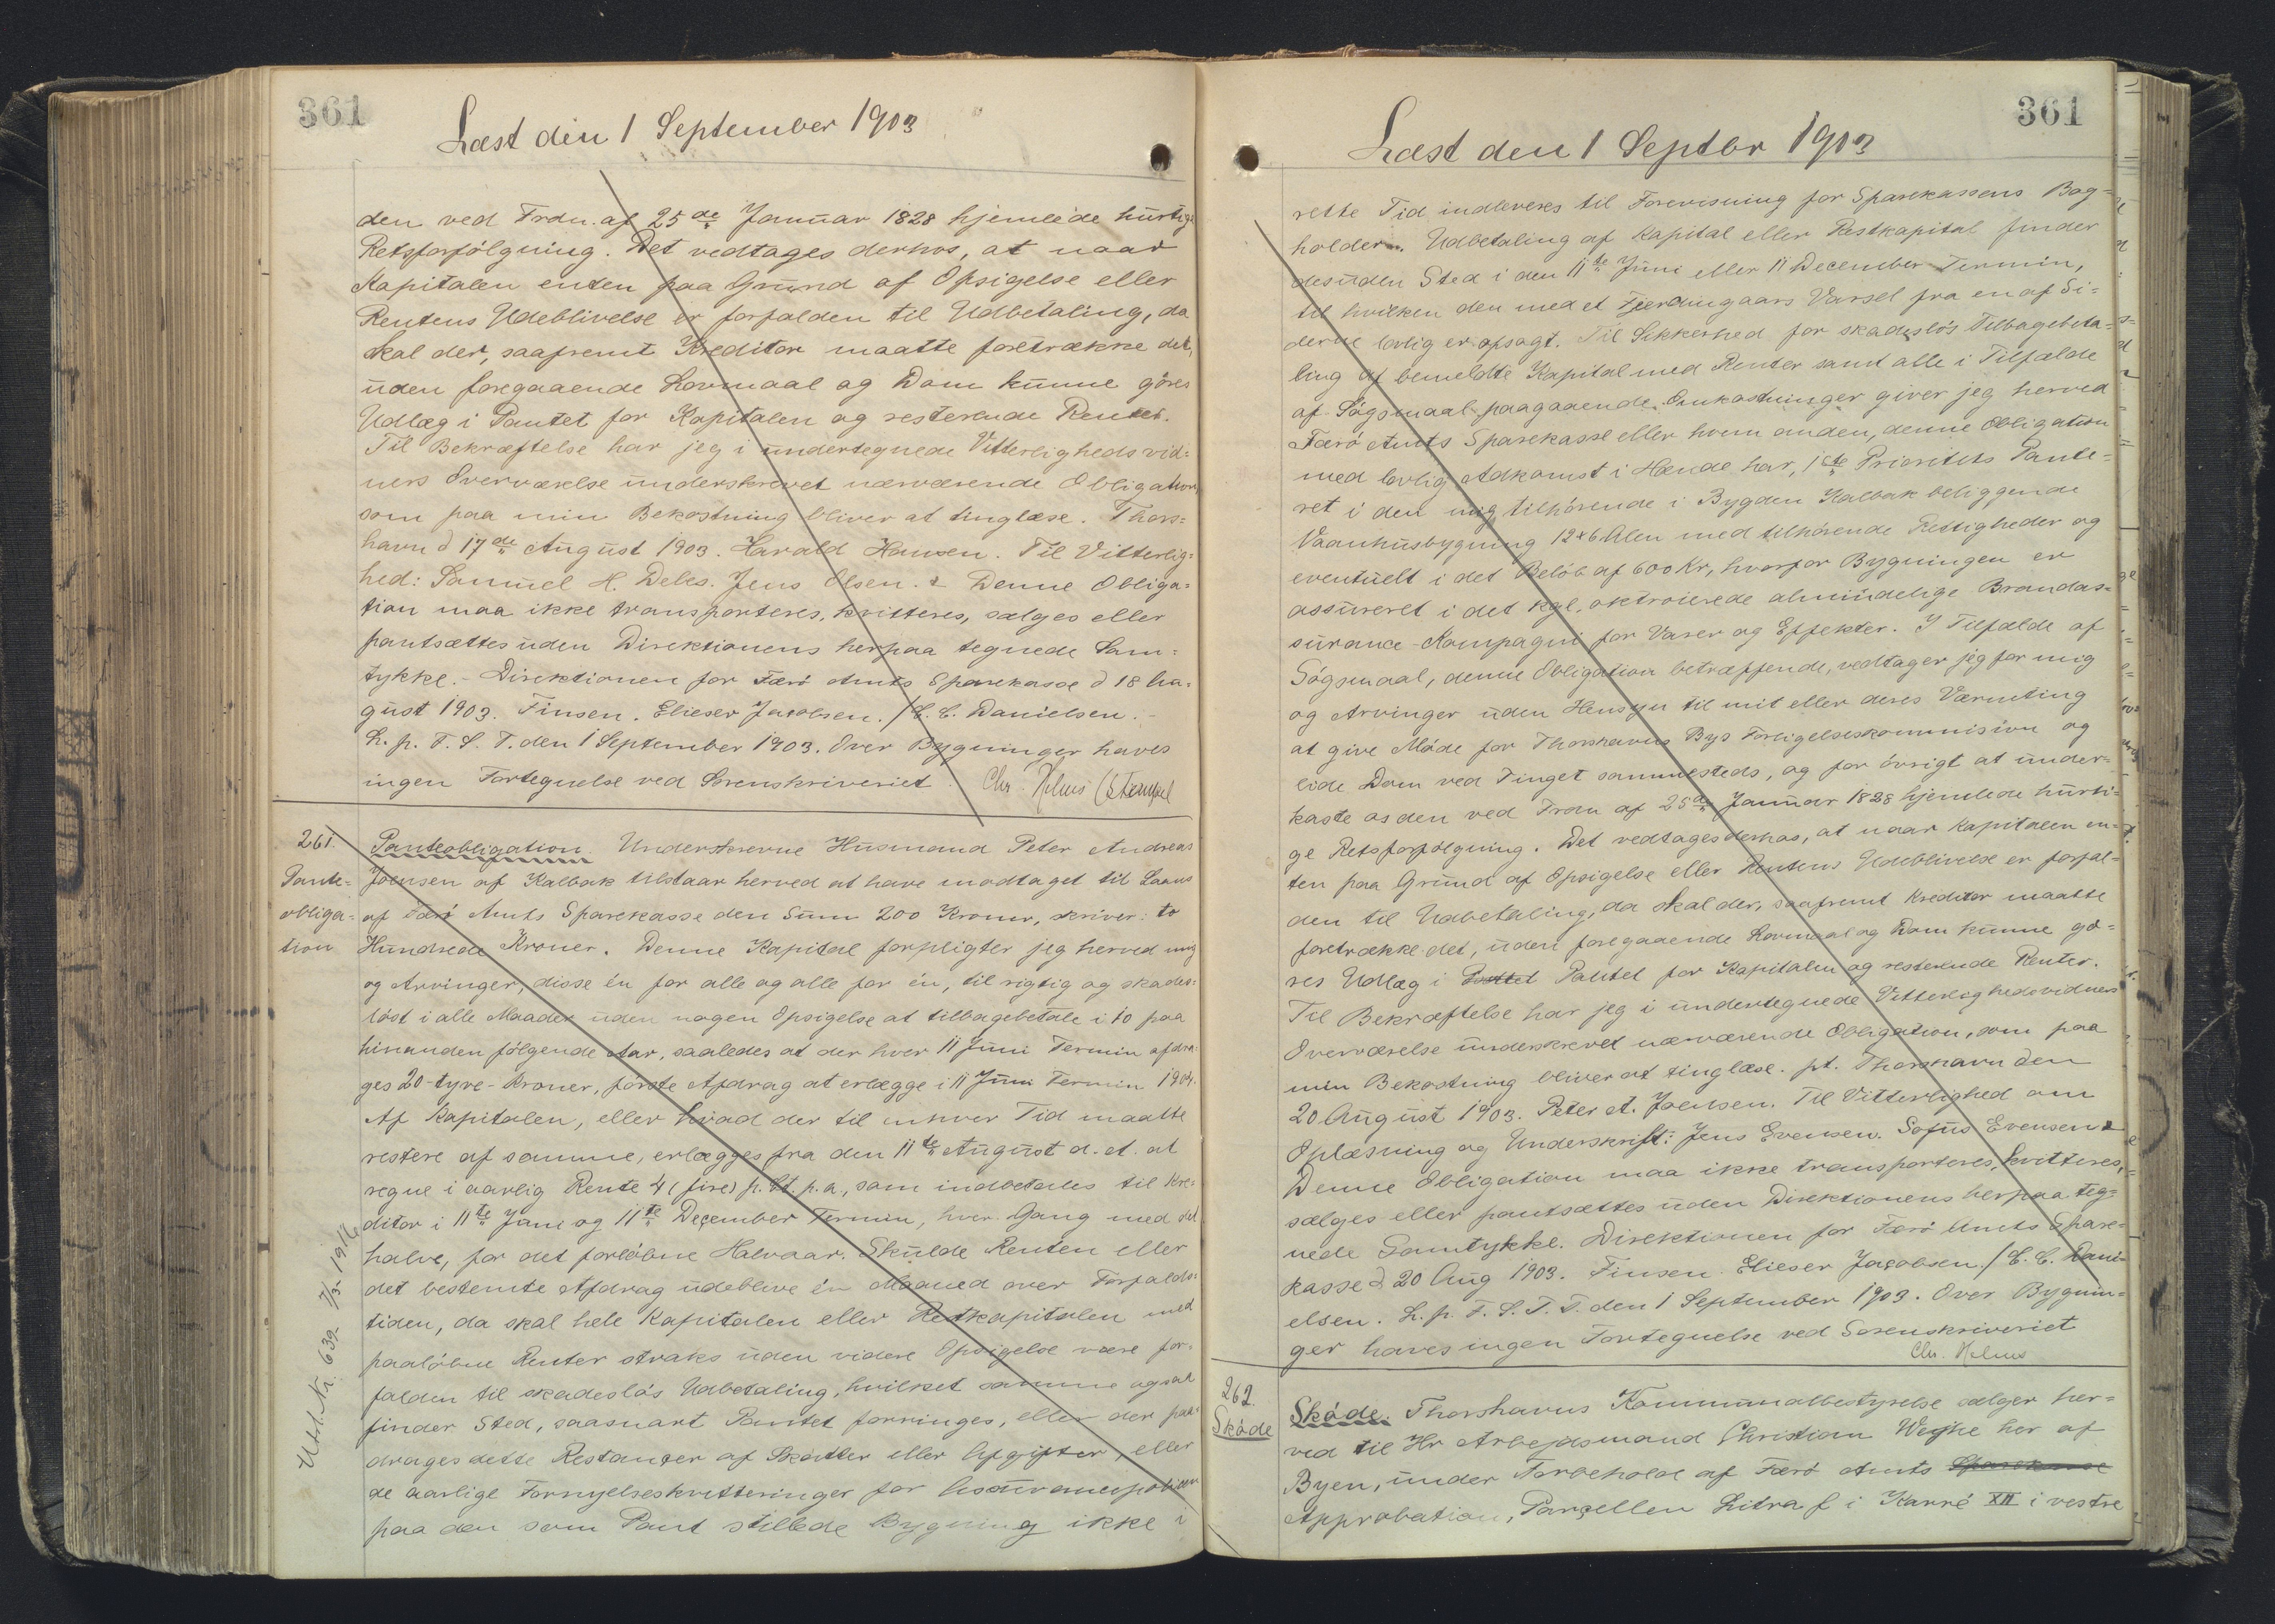 361
Læst den 1 September 1903
den ved Frdn. af 25de Januar 1828 hjemlede hurtige
Retsforfölgning. Det vedtages derhos, at naar
Kapitalen enten paa Grund af Opsigelse eller
Rentens Udeblivelse er forfalden til Udbetaling, da
skal der, saafremt Kreditor maatte foretrække det,
uden foregaaende Lovmaal og Dom kunne göres
Udlæg i Pantet for Kapitalen og resterende Renter.
Til Bekræftelse har jeg i undertegnede Vitterligheds vid-
ners Overværelse underskrevet nærværende Obligation,
som paa min Bekostning bliver at tinglæse. Thors-
havn d 17de August 1903. Harald Hansen. Til Vitterlig-
hed: Samuel H. Debes. Jens Olsen. & Denne Obliga-
tion maa ikke transporteres, kvitteres, sælges eller
pantsættes uden Direktionens herpaa tegnede Sam-
tykke. - Direktionen for Færö Amts Sparekasse d 18 Au-
gust 1903. Finsen. Elieser Jacobsen. / C. C. Danielsen. -
L. p. F. S. T. den 1 September 1903. Over Bygninger haves
ingen Fortegnelse ved Sorenskriveriet. Chr. Helms (Stempel
261.
Pante-
obliga-
tion
Panteobligation. Underskrevne Husmand Peter Andreas
Joensen af Kalbak tilstaar herved at have modtaget til Laans
af Færö Amts Sparekasse den Sum 200 Kroner, skriver: to
Hundrede Kroner. Denne Kapital forpligter jeg herved mig
og Arvinger, disse én for alle og alle for én, til rigtig og skades-
löst i alle Maader uden nogen Opsigelse at tilbagebetale i 10 paa
hinanden fölgende Aar, saaledes at der hver 11 Juni Termin afdra-
ges 20 - tyve - Kroner, förste Afdrag at erlægge i 11 Juni Termin 1904.
Af Kapitalen, eller hvad der til enhver Tid maatte
restere af samme, erlægges fra den 11te August d. A. at
regne i aarlig Rente 4 (fire) p. Ct. p. a., som indbetales til Kre-
ditor i 11te Juni og 11te December Termin, hver Gang med det
halve, for det forlöbne Halvaar. Skulde Renten eller
det bestemte Afdrag udeblive én Maaned over Forfalds-
tiden, da skal hele Kapitalen eller Restkapitalen med
paalöbne Renter straks uden videre Opsigelse være for-
falden til skadeslös Udbetaling, hvilket samme ogsaa
finder Sted, saasnart Pantet forringes, eller der paa-
drages dette Restancer af Skatter eller Afgifter, eller
de aarlige Fornyelseskvitteringer for Assurancepolicen
paa den som Pant stillede Bygning ikke i
Udsl. Nr. 639 7/3 1916
361
Læst den 1 Septbr 1903
rette Tid indleveres til Forevisning for Sparekassens Bog-
holder. Udbetaling af Kapital eller Restkapital finder
desuden Sted i den 11te Juni eller 11 December Termin,
til hvilken den med et Fjerdingaars Varsel fra en af Si-
derne lovlig er opsagt. Til Sikkerhed for skadeslös Tilbagebeta-
ling af bemeldte Kapital med Renter samt alle i Tilfælde
af Sögsmaal paagaaende Omkostninger giver jeg herved
Færö Amts Sparekasse eller hvem anden, denne Obligation
med lovlig Adkomst i Hænde har, 1ste Prioritets Pante-
ret i den mig tilhörende i Bygden Kalbak beliggende
Vaanhusbygning 12 x 6 Alen med tilhörende Rettigheder og
eventuelt i det Belöb af 600 Kr, hvorfor Bygningen er
assureret i det kgl. oktroierede almindelige Brandas-
surance-Kompagni for Varer og Effekter. I Tilfælde af
Sögsmaal, denne Obligation betræffende, vedtager jeg for mig
og Arvinger uden Hensyn til mit eller deres Værneting
at give Möde for Thorshavns Bys Forligelseskommision og
lide Dom ved Tinget sammesteds, og for övrigt at under-
kaste os den ved Frdn af 25de Januar 1828 hjemlede hurti-
ge Retsforfölgning. Det vedtages derhos, at naar Kapitalen en-
ten paa Grund af Opsigelse eller Rentens Udeblivelse er forfal-
den til Udbetaling, da skal der, saafremt Kreditor maatte
foretrække det, uden foregaaende Lovmaal og Dom kunne gö-
res Udlæg i Pantet for Kapitalen og resterende Renter.
Til Bekræftelse har jeg i undertegnede Vitterlighedsvidners
Overværelse underskrevet nærværende Obligation, som paa
min Bekostning bliver at tinglæse. pt. Thorshavn den
20 August 1903. Peter A. Joensen. Til Vitterlighed om
Oplæsning og Underskrift: Jens Evensen. Sofus Evensen &
Denne Obligation maa ikke transporteres, kvitteres,
sælges eller pantsættes uden Direktionens herpaa teg-
nede Samtykke. Direktionen for Færö Amts Spare-
kasse d. 20 Aug 1903. Finsen. Elieser Jacobsen. / C. C. Dani-
elsen. L. p. F. S. T. T. den 1 September 1903. Over Bygnin-
ger haves ingen Fortegnelse ved Sorenskriveriet
Chr. Helms
262.
Sköde
Sköde. Thorshavns Kommunalbestyrelse sælger her-
ved til Hr Arbejdsmand Christian Weyhe her af
Byen, under Forbehold af Færö Amts Sparekasse
Approbation, Parcellen Litra f i Karré XII i vestre